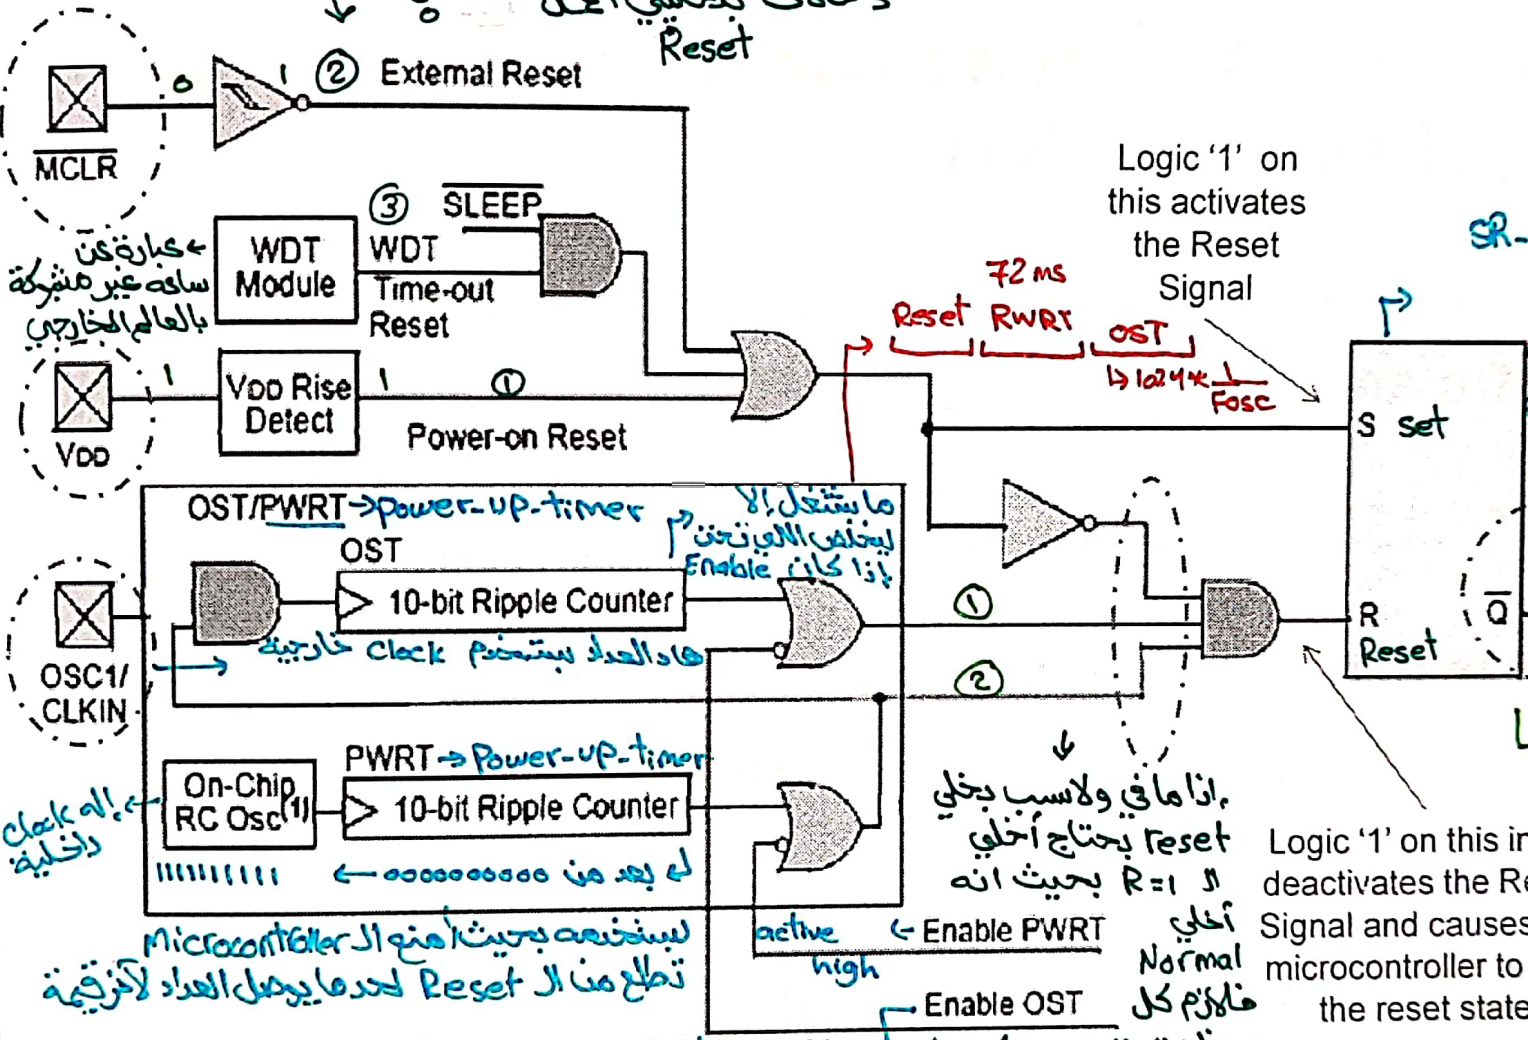 Reset
External Reset
0
1
②
MCLR
③
SLEEP
WDT
Module
WDT
Time-out
Reset
← عبارة عن
ساعة غير مشتركة
بالعالم الخارجي
VDD
1
VDD Rise
Detect
1
①
Power-on Reset
Logic ‘1’ on
this activates
the Reset
Signal
SR-
72 ms
Reset RWRT OST
↳ 1024 * 1/Fosc
S set
R
Reset
Q
OST/PWRT → power-up-timer
OST
10-bit Ripple Counter
ما بشتغل إلا
ليخلص اللي تحت
إذا كان Enable
هاد العداد بستخدم clock خارجية
OSC1/
CLKIN
①
②
PWRT → Power-up-timer
On-Chip
RC Osc(1)
10-bit Ripple Counter
إله clock
داخلية
1111111111 ← 0000000000 بعد من
بحيث أمنع الـ Microcontroller
تطلع من الـ Reset لحد ما يوصل العداد لآخر قيمة
active
high
← Enable PWRT
Enable OST
إذا ما في ولا سبب بخلي
reset بحتاج أخلي
الـ R=1 بحيث انه
أخلي
Normal
فلازم كل
Logic ‘1’ on this in
deactivates the Re
Signal and causes
microcontroller to
the reset state